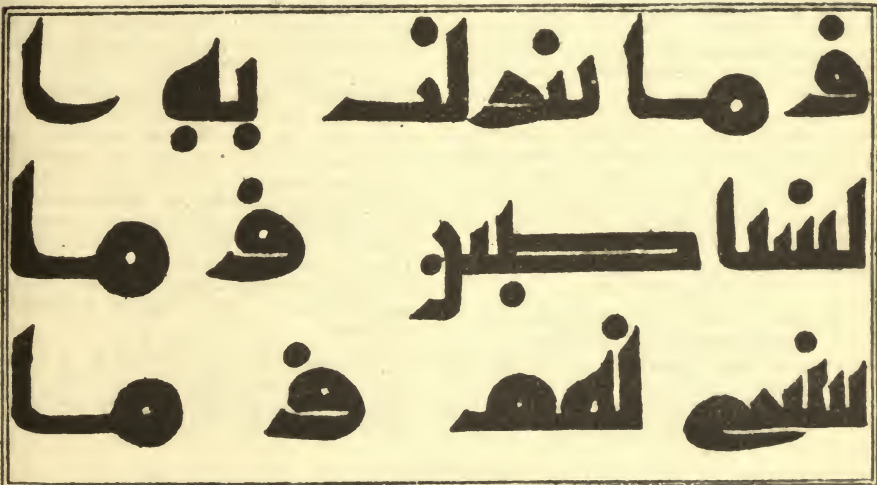 وما تنزلت به ا
لشياطين وما
ينبغي لهم وما